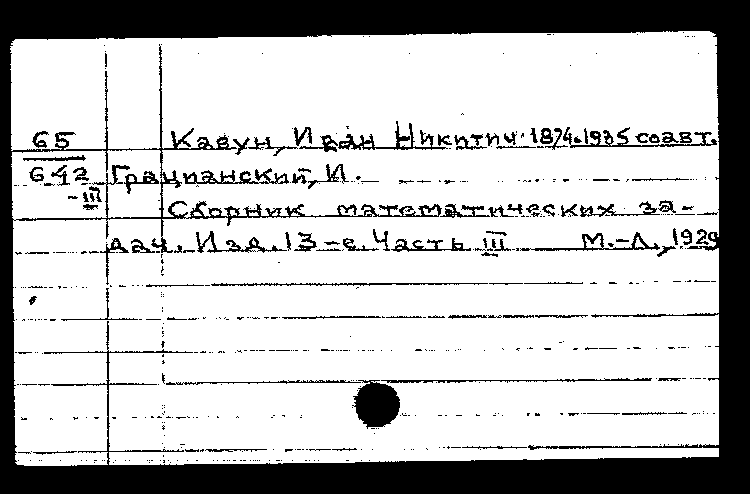 65 Кавун, Иван Никитич 1874-1935 соавт.
642 Грацианский, И.
-III
Сборник математических за-
дач. Изд. 13-е. Часть III М.-Л., 1929